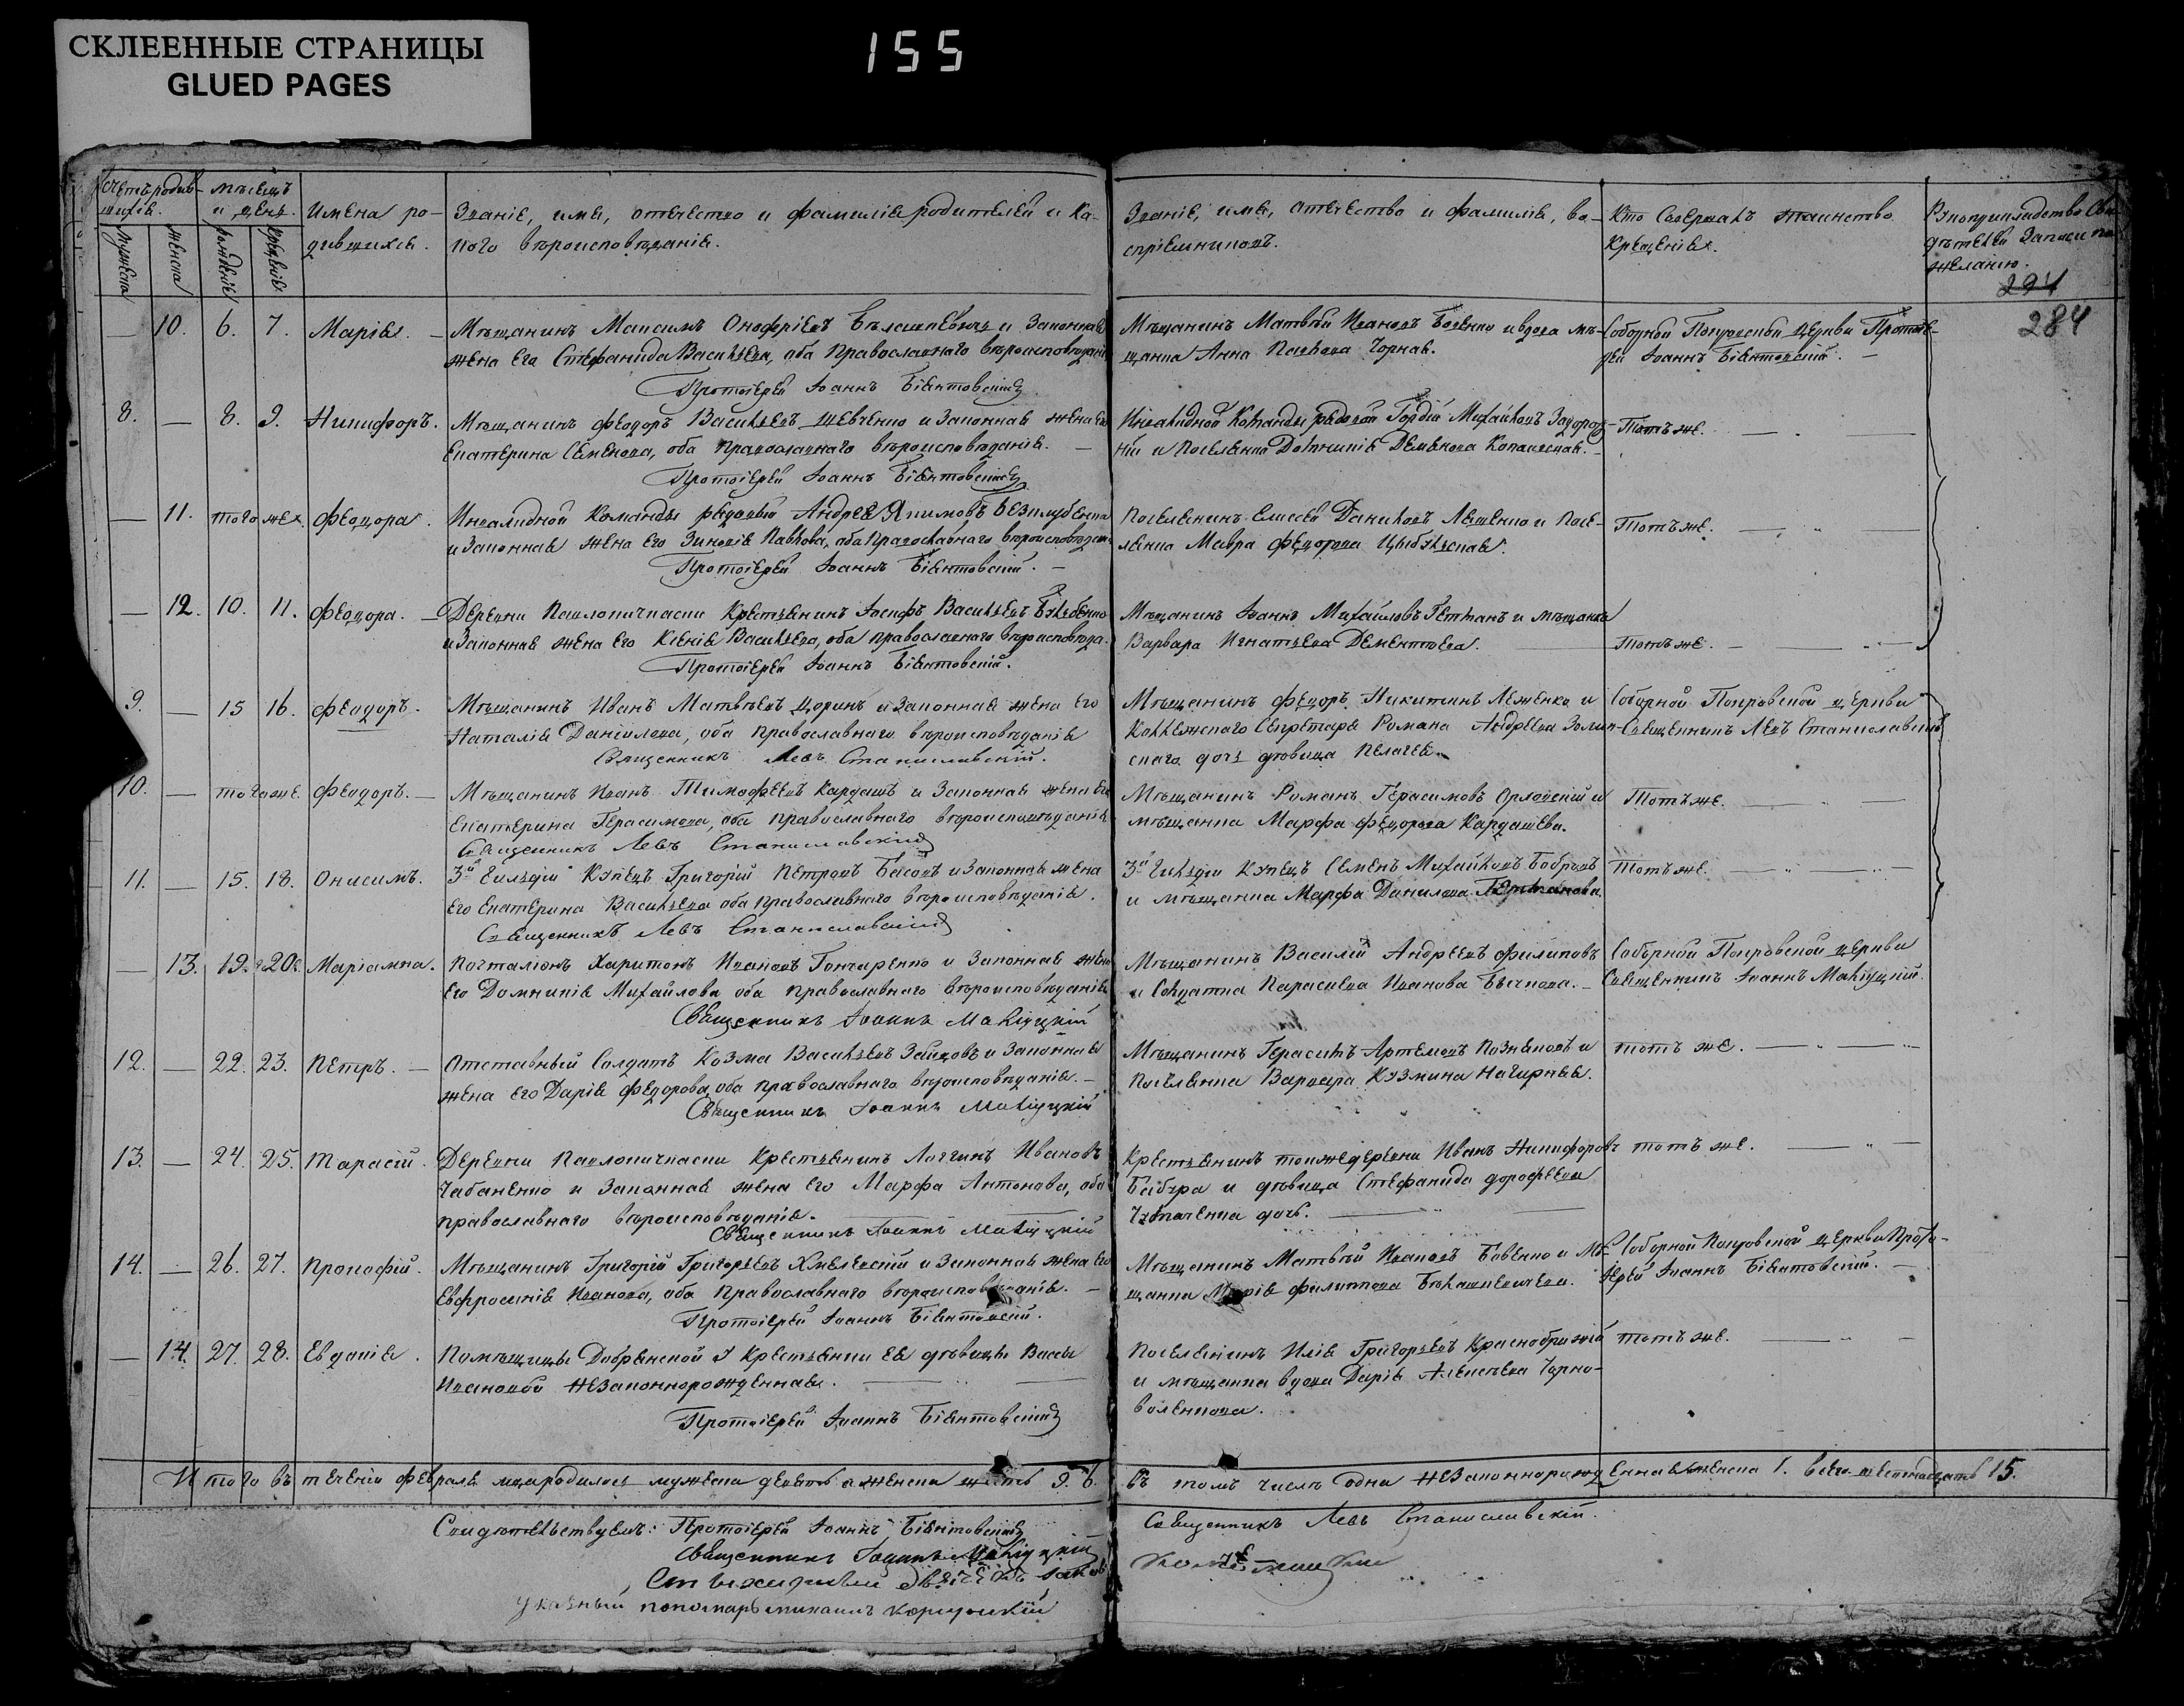 СКЛЕЕННЫЕ СТРАНИЦЫ
GLUED PAGES
155
Счетъ родив-
шихся.
мужеска
женска
Мѣсяцъ
и день.
рожденіе
крещеніе
Имена ро-
дившихся.
Званіе, имя, отечество и фамилія родителей и ка-
кого вѣроисповѣданія.
Званіе, имя, отечество и фамилія, во-
спріемниковъ.
Кто Совершалъ таинство
Крещенія.
желанію.
294
284
— 10. 6. 7. Марія. —
Мѣщанинъ Максимъ Онофріевъ и Законная
жена Его Стефанида Васильева, оба Православнаго вѣроисповѣданія
Протоіерей Іоаннъ Біянтовскій
Мѣщанинъ Матвѣй Ивановъ Бовенко и вдова мѣ-
щанка Анна Павлова Чорная.
Соборной Покровской Церкви Протоіе-
рей Іоаннъ Біянтовскій. —
8. — 8. 9. Никифоръ.
Мѣщанинъ Феодоръ Васильевъ Шевченко и Законная жена его
Екатерина Семенова, оба православнаго вѣроисповѣданія. —
Протоіерей Іоаннъ Біянтовскій
Инвалидной Команды рядовой Гордій Михайловъ Задорож-
ній и поселянка Домникія Деменова
Тотъ же.
— 11. того же. Феодора.
Инвалидной Команды рядовый Андрей Якимовъ
и Законная жена Его Зиновія Павлова, оба Православнаго вѣроисповѣдан.
Протоіерей Іоаннъ Біянтовскій. —
Поселянинъ Елисей Даниловъ Лященко и Посе-
лянка Мавра Федорова Цыбульская.
Тотъ же.
— 12. 10. 11. Феодора. —
Деревни Павлопичпаски Крестьянинъ Іосифъ Васильевъ
и Законная жена Его Ксенія Васильева, оба православнаго вѣроисповѣда.
Протоіерей Іоаннъ Біянтовскій.
Мѣщанинъ Іоаннъ Михайловъ Гетманъ и мѣщанка
Варвара Игнатьева Дементьева.
Тотъ же.
9. — 15 16. Феодоръ.
Мѣщанинъ Иванъ Матвѣевъ Цоринъ и Законная жена Его
Наталія Даніилева, оба Православнаго вѣроисповѣданія
Священникъ Левъ Станиславскій.
Мѣщанинъ Федоръ Никитинъ Леженко и
Коллежскаго Секретаря Романа Андреева
скаго дочь дѣвица Пелагея.
Соборной Покровской церкви
Священникъ Левъ Станиславскій
10. — того же. Феодоръ. —
Мѣщанинъ Иванъ Тимофеевъ Кардашъ и Законная жена Его
Екатерина Герасимова, оба православнаго вѣроисповѣданія
Священникъ Левъ Станиславскій
Мѣщанинъ Романъ Герасимовъ Орловскій и
мѣщанка Марфа Федорова Кардашева.
Тотъ же.
11. — 15. 18. Онисимъ.
3й Гильдіи Купецъ Григорій Петровъ Басовъ и Законная жена
Его Екатерина Васильева оба православнаго вѣроисповѣданія.
Священникъ Левъ Станиславскій
3й Гильдіи Купецъ Семенъ Михайловъ Бобровъ
и мѣщанка Марфа Данилова Гетманова.
Тотъ же.
— 13. 19. 20. Маріамна.
Почталіонъ Харитонъ Ивановъ Гончаренко и Законная жена
Его Домникія Михайлова оба православнаго вѣроисповѣданія
Священникъ Іоаннъ Малицкій
Мѣщанинъ Василій Андреевъ Филиповъ
и Солдатка Параскева Иванова Бычкова. —
Соборной Покровской церкви
Священникъ Іоаннъ Малицкій.
12. — 22. 23. Петръ. —
Отставный Солдатъ Козма Васильевъ Зайцовъ и Законная
жена его Дарія Федорова, оба православнаго вѣроисповѣданія. —
Священникъ Іоаннъ Малицкій
Мѣщанинъ Герасимъ Артемовъ Позняковъ и
Поселянка Варвара Кузмина Нагирная.
тотъ же.
13. — 24. 25. Тарасій.
Деревни Павлопичпаски Крестьянинъ Логгинъ Ивановъ
Чабаненко и Законная жена Его Марфа Антонова, оба
православнаго вѣроисповѣданія.
Священникъ Іоаннъ Малицкій
Крестьянинъ тойже деревни Иванъ Никифоровъ
Бабура и дѣвица Стефанида Дорофеева
дочь.
тотъ же.
14. — 26. 27. Прокофій.
Мѣщанинъ Григорій Григорьевъ Хмелевскій и Законная жена Его
Евфросинія Иванова, оба Православнаго вѣроисповѣданія. —
Протоіерей Іоаннъ Біянтовскій.
Мѣщанинъ Матвѣй Ивановъ Бовенко и Мѣ-
щанка Марія Филиппова
Соборной Покровской Церкви Прото-
іерей Іоаннъ Біянтовскій. —
— 14. 27. 28. Евдокія.
Помѣщицы Добрянской Крестьянки Ея дѣвицы Вассы
Ивановой Незаконнорожденная.
Протоіерей Іоаннъ Біянтовскій
Поселянинъ Илія Григорьевъ
и мѣщанка вдова Дарія Алексѣева Чорно-
воленкова.
тотъ же.
Итого въ теченіи Февраля мца родилось мужеска девять а женска шесть 9. 6. Въ томъ числѣ одна Незаконнорожденная женска 1. всего 15.
Свидѣтельствуемъ: Протоіерей Іоаннъ Біянтовскій
Священникъ Іоаннъ Малицкій
Священникъ Левъ Станиславскій.
указный пономарь Михаилъ